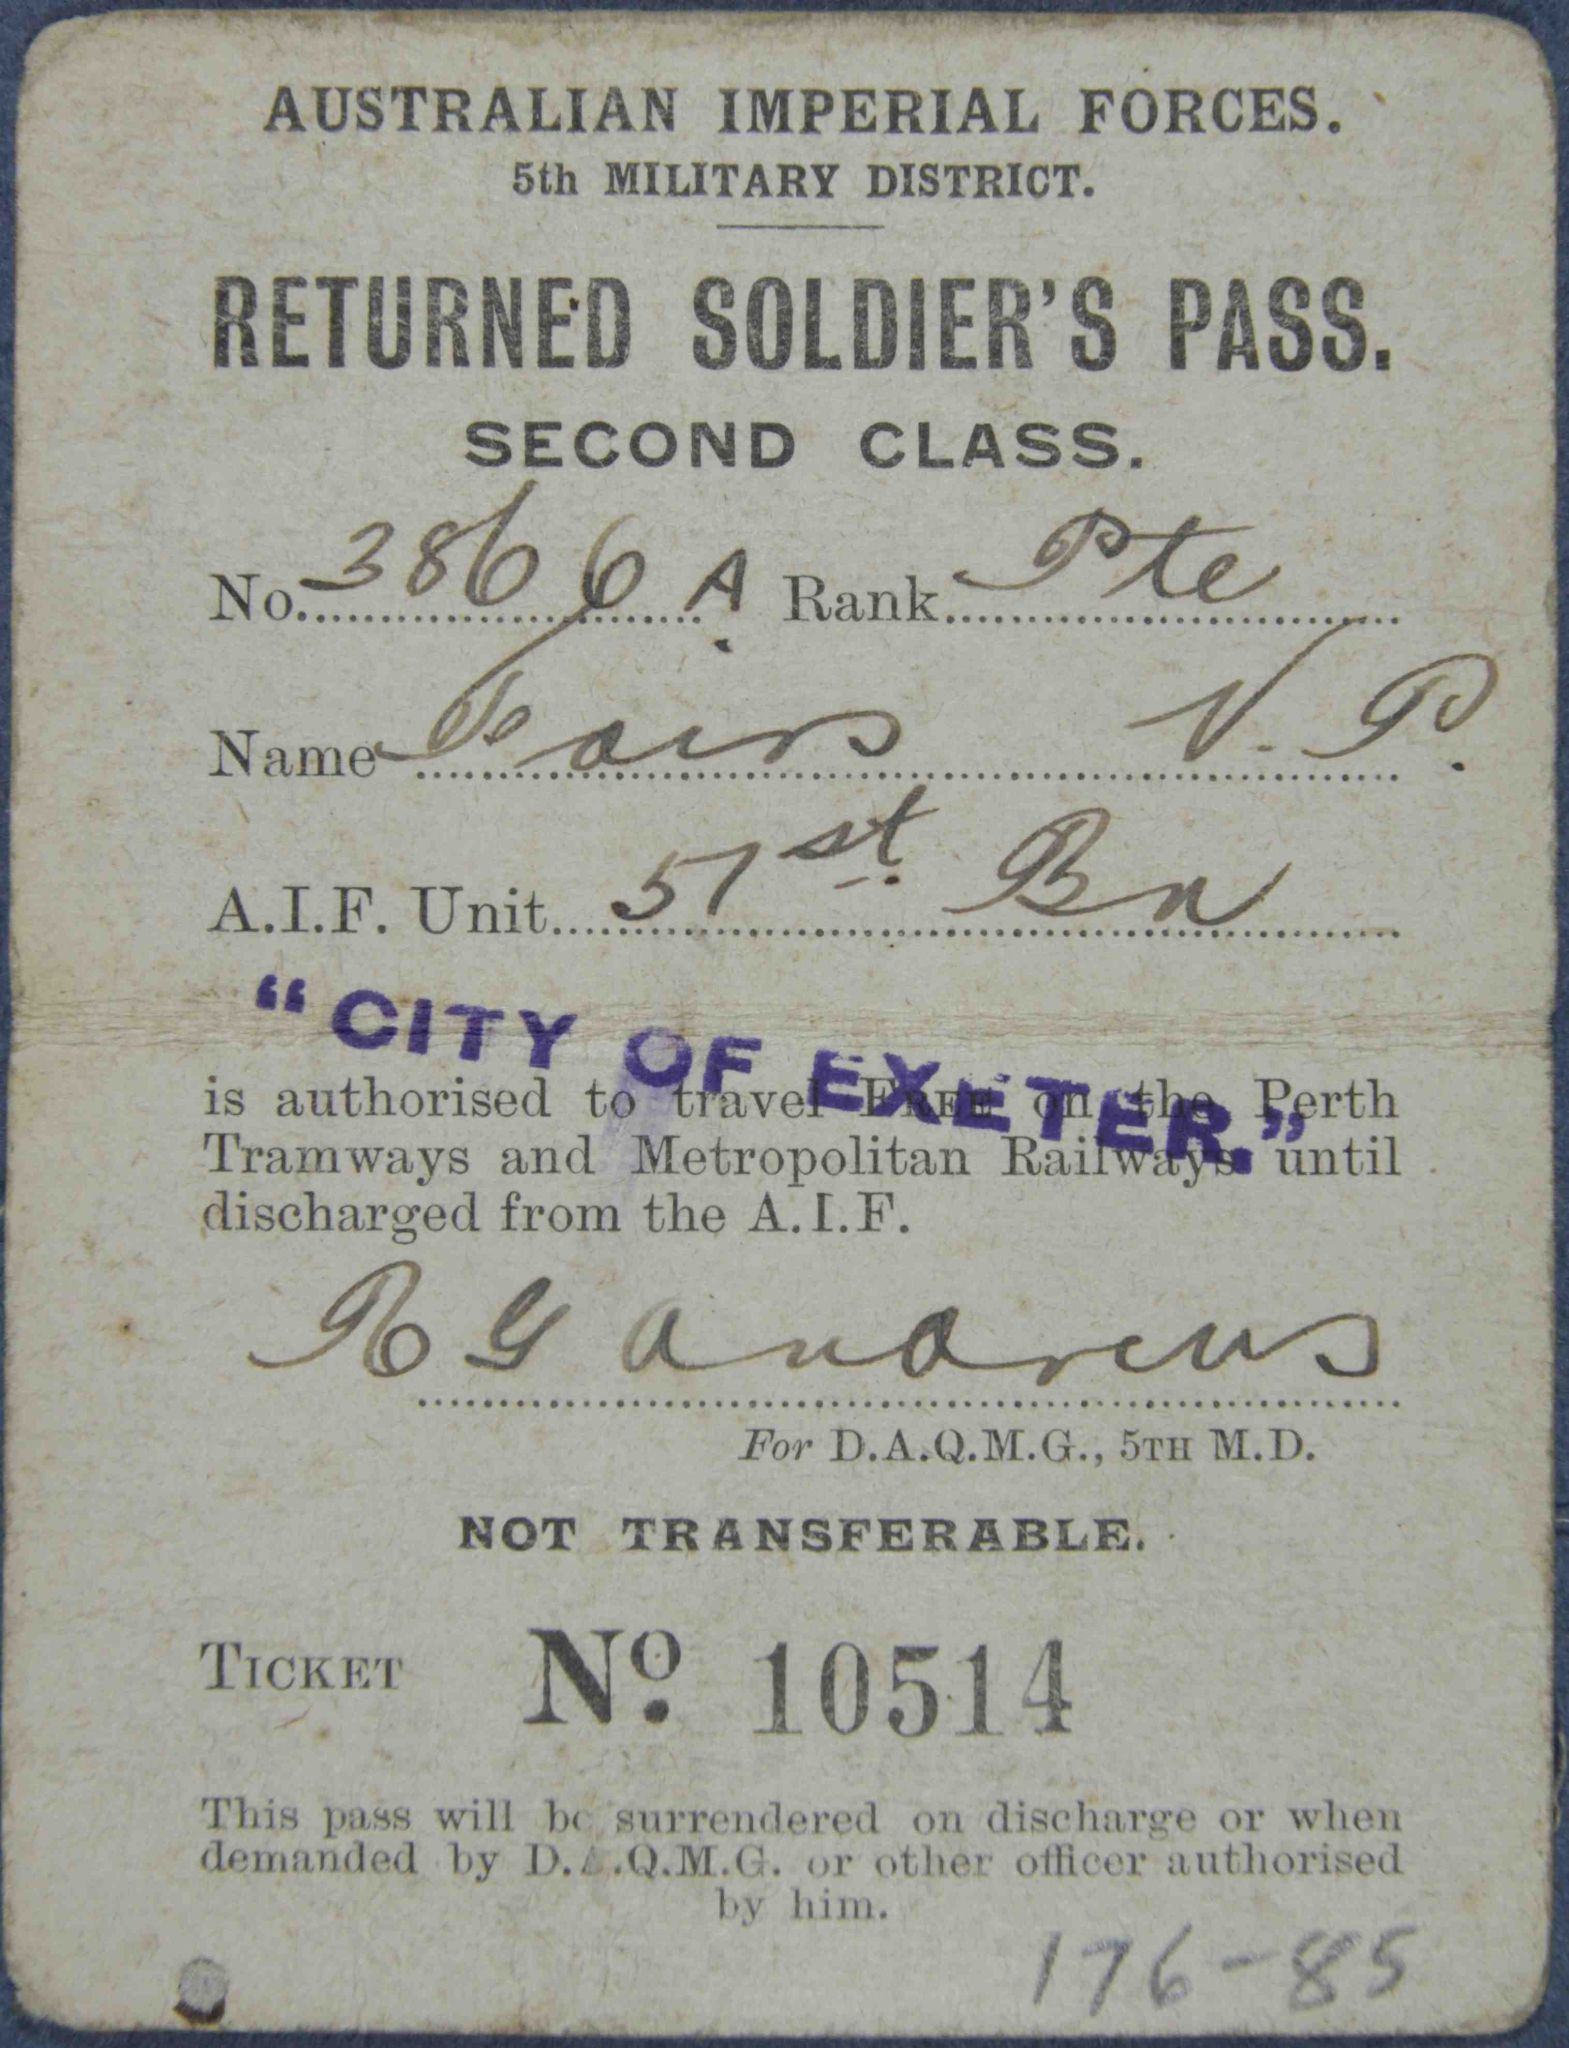 AUSTRALIAN IMPERIAL FORCES.
5th MILITARY DISTRICT.
RETURNED SOLDIER'S PASS.
SECOND CLASS.
No. 3866 A. Rank Pte
Name V. P.
A.I.F. Unit 51st. Bn
"CITY OF EXETER."
is authorised to travel FREE on the Perth
Tramways and Metropolitan Railways until
discharged from the A.I.F.
R G Andrews
For D.A.Q.M.G., 5TH M.D.
NOT TRANSFERABLE.
TICKET No. 10514
This pass will be surrendered on discharge or when
demanded by D.A.Q.M.G. or other officer authorised
by him.
176-85